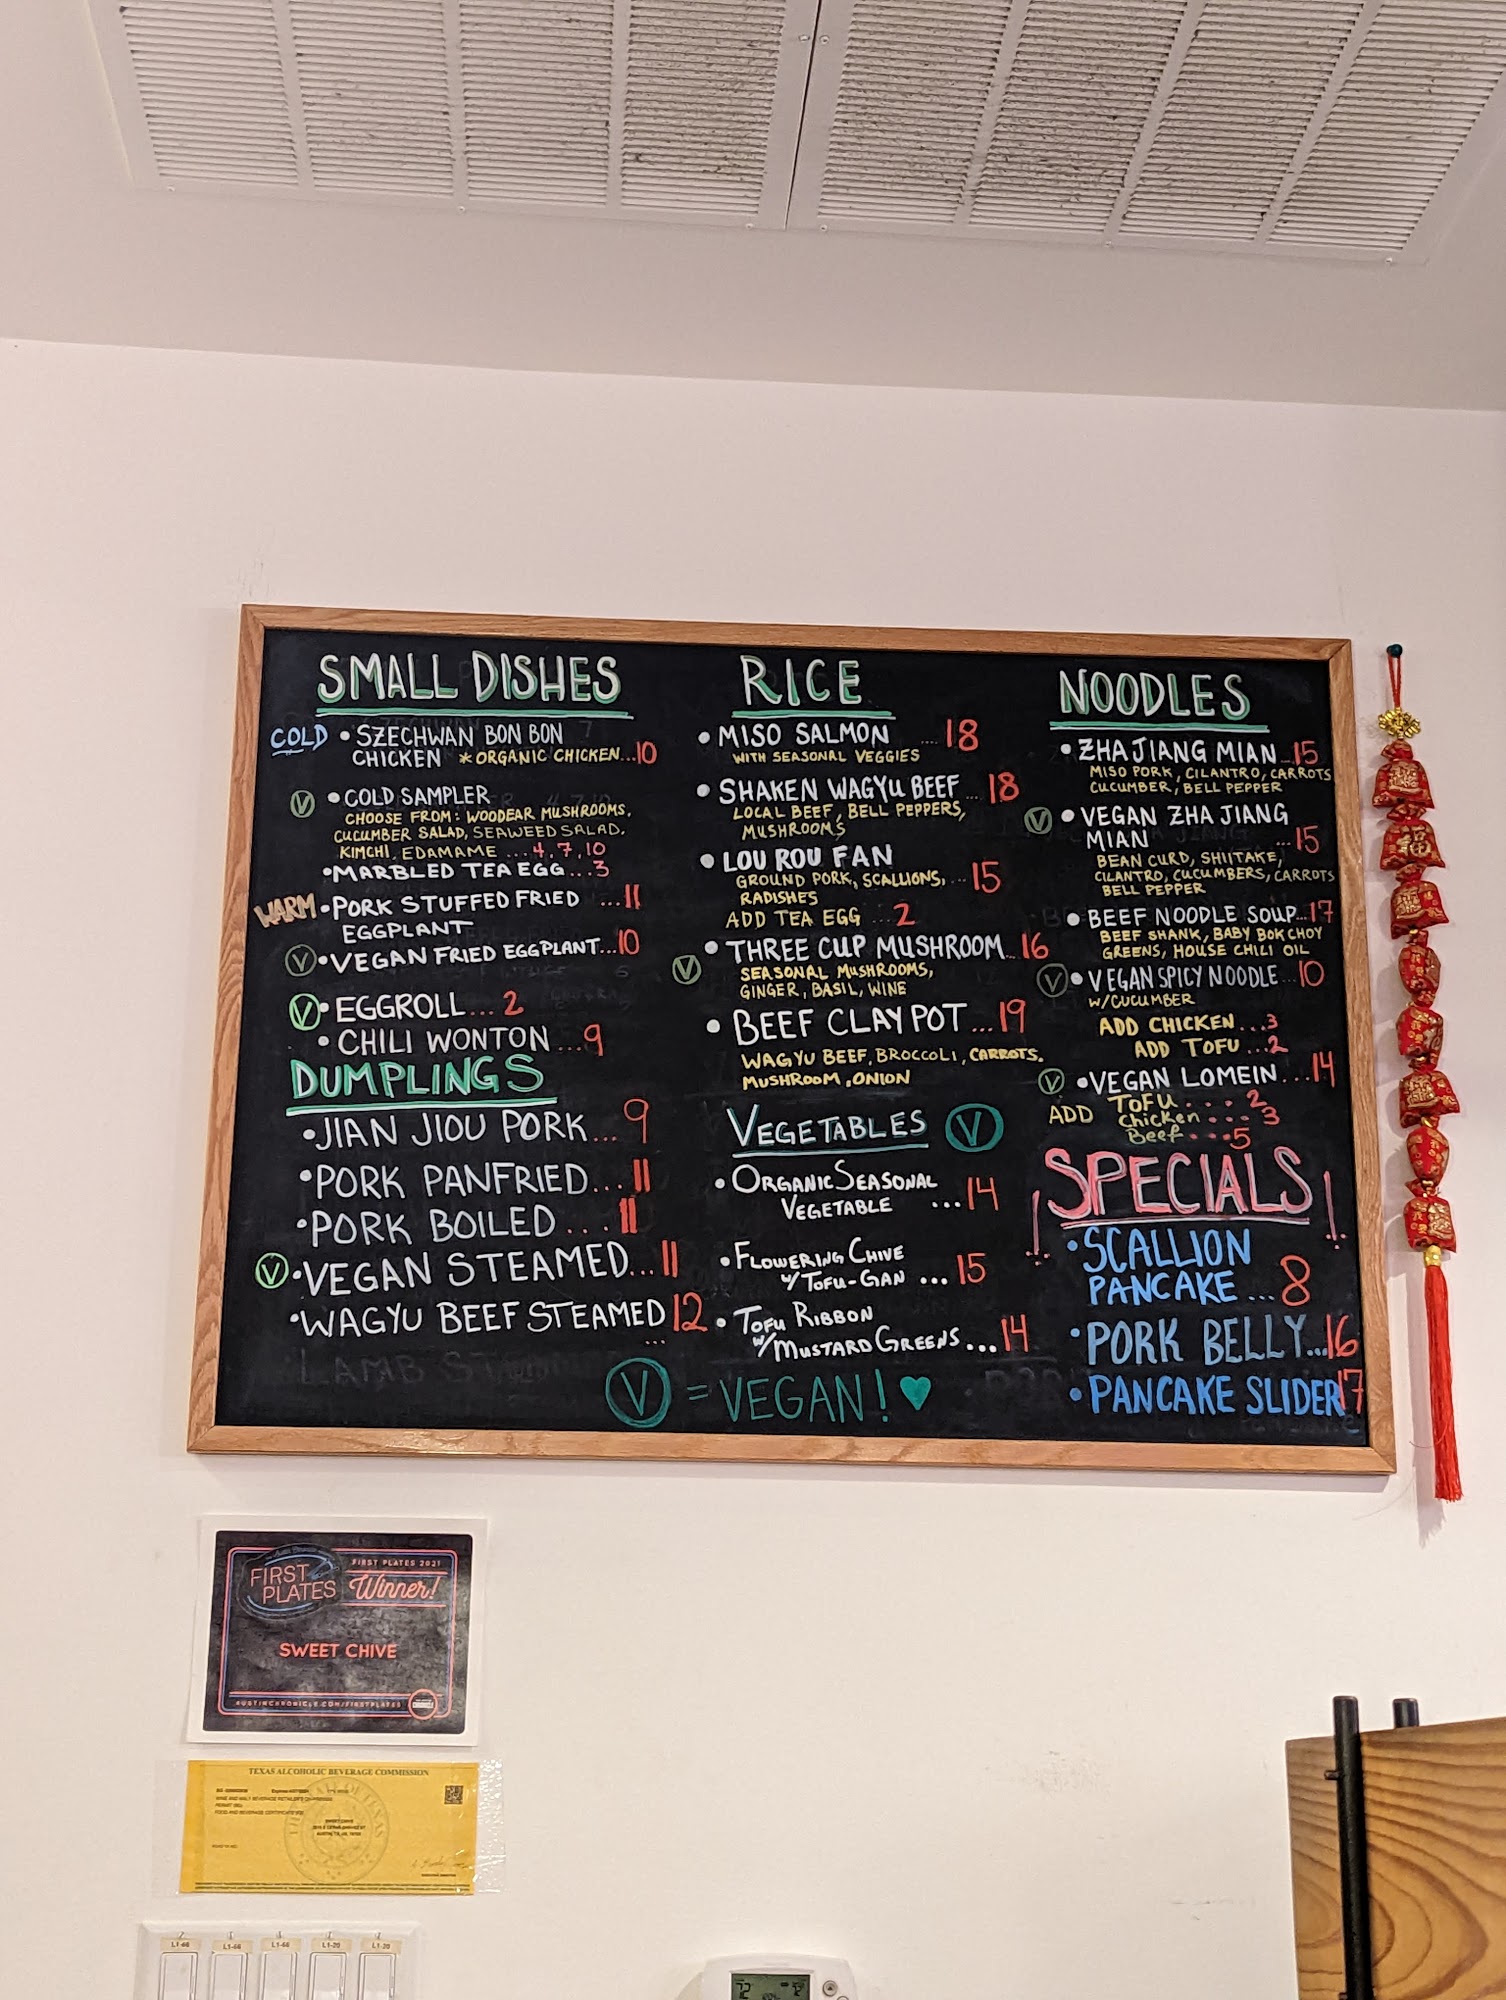 SMALL DISHES
COLD • SZECHWAN BON BON
CHICKEN *ORGANIC CHICKEN...10
Ⓥ • COLD SAMPLER
CHOOSE FROM: WOODEAR MUSHROOMS,
CUCUMBER SALAD, SEAWEED SALAD,
KIMCHI, EDAMAME ....4, 7, 10
• MARBLED TEA EGG...3
WARM • PORK STUFFED FRIED ...11
EGGPLANT
Ⓥ • VEGAN FRIED EGGPLANT...10
Ⓥ • EGGROLL... 2
• CHILI WONTON ...9
DUMPLINGS
• JIAN JIOU PORK... 9
• PORK PANFRIED... 11
• PORK BOILED .... 11
Ⓥ • VEGAN STEAMED... 11
• WAGYU BEEF STEAMED 12
...
LAMB
RICE
• MISO SALMON .... 18
WITH SEASONAL VEGGIES
• SHAKEN WAGYU BEEF ... 18
LOCAL BEEF, BELL PEPPERS,
MUSHROOMS
• LOU ROU FAN
GROUND PORK, SCALLIONS, ... 15
RADISHES
ADD TEA EGG ... 2
• THREE CUP MUSHROOM... 16
Ⓥ SEASONAL MUSHROOMS,
GINGER, BASIL, WINE
• BEEF CLAY POT ... 19
WAGYU BEEF, BROCCOLI, CARROTS.
MUSHROOM, ONION
VEGETABLES Ⓥ
• ORGANIC SEASONAL
VEGETABLE ... 14
• FLOWERING CHIVE
W/ TOFU-GAN ... 15
• TOFU RIBBON
W/ MUSTARD GREENS... 14
Ⓥ = VEGAN! ♥
NOODLES
• ZHA JIANG MIAN ...15
MISO PORK, CILANTRO, CARROTS
CUCUMBER, BELL PEPPER
Ⓥ • VEGAN ZHA JIANG
MIAN ...15
BEAN CURD, SHIITAKE,
CILANTRO, CUCUMBERS, CARROTS
BELL PEPPER
• BEEF NOODLE SOUP...17
BEEF SHANK, BABY BOK CHOY
GREENS, HOUSE CHILI OIL
Ⓥ • VEGAN SPICY NOODLE ...10
W/CUCUMBER
ADD CHICKEN ...3
ADD TOFU ...2
Ⓥ • VEGAN LOMEIN ...14
ADD TOFU.... 2
Chicken.... 3
Beef....5
!SPECIALS!
• SCALLION
PANCAKE ... 8
• PORK BELLY... 16
• PANCAKE SLIDER 17
FIRST PLATES
FIRST PLATES 2021
Winner!
SWEET CHIVE
AUSTINCHRONICLE.COM/FIRSTPLATES
CHRONICLE
TEXAS ALCOHOLIC BEVERAGE COMMISSION
WINE AND MALT BEVERAGE RETAILER'S ON-PREMISE
FOOD AND BEVERAGE CERTIFICATE
SWEET CHIVE
L1-66
L1-66
L1-66
L1-20
L1-20
72